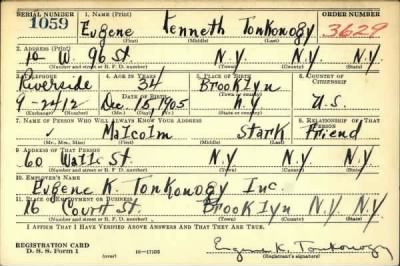 SERIAL NUMBER 1. NAME (Print) ORDER NUMBER
1059 Eugene Kenneth Tonkonogy 3629
(First) (Middle) (Last)
2. ADDRESS (Print)
10 W. 96 St. N.Y. N.Y. N.Y.
(Number and street or R. F. D. number) (Town) (County) (State)
3. TELEPHONE 4. AGE IN YEARS 5. PLACE OF BIRTH 6. COUNTRY OF CITIZENSHIP
Riverside 34 Brooklyn
DATE OF BIRTH (Town or county)
9-2412 Dec. 15, 1905 N.Y. U.S.
(Mo.) (Day) (Yr.) (State or country)
7. NAME OF PERSON WHO WILL ALWAYS KNOW YOUR ADDRESS 8. RELATIONSHIP OF THAT PERSON
Malcolm Stark Friend
(Mr., Mrs., Miss) (First) (Middle) (Last)
9. ADDRESS OF THAT PERSON
60 Wall St. N.Y. N.Y. N.Y.
(Number and street or R. F. D. number) (Town) (County) (State)
10. EMPLOYER'S NAME
Eugene K. Tonkonogy Inc.
11. PLACE OF EMPLOYMENT OR BUSINESS
16 Court St. Brooklyn N.Y. N.Y.
(Number and street or R. F. D. number) (Town) (County) (State)
I AFFIRM THAT I HAVE VERIFIED ABOVE ANSWERS AND THAT THEY ARE TRUE.
REGISTRATION CARD
D. S. S. Form 1 (over) Eugene K. Tonkonogy
(Registrant's signature)